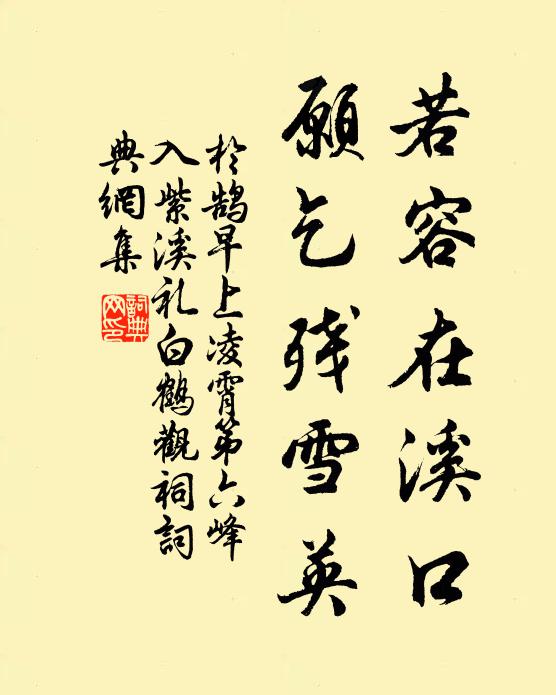 若容在溪口
願乞残雪英
於鹄早上凌霄第六峰
入紫溪礼白鶴觀祠詞
典網集
詞典网印